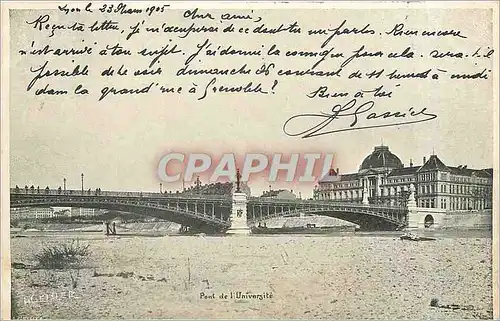 Lyon le 23 Mars 1905
Cher ami,
Reçu ta lettre, je m'occuperai de ce dont tu me parles. Rien encore
n'est arrivé à ton sujet. J'ai donné la consigne pour cela. Sera-t-il
possible de te voir dimanche 26 courant de 11 heures à midi
dans la grand'rue à Grenoble?
Bien à toi
CPARAMA
Pont de l'Université